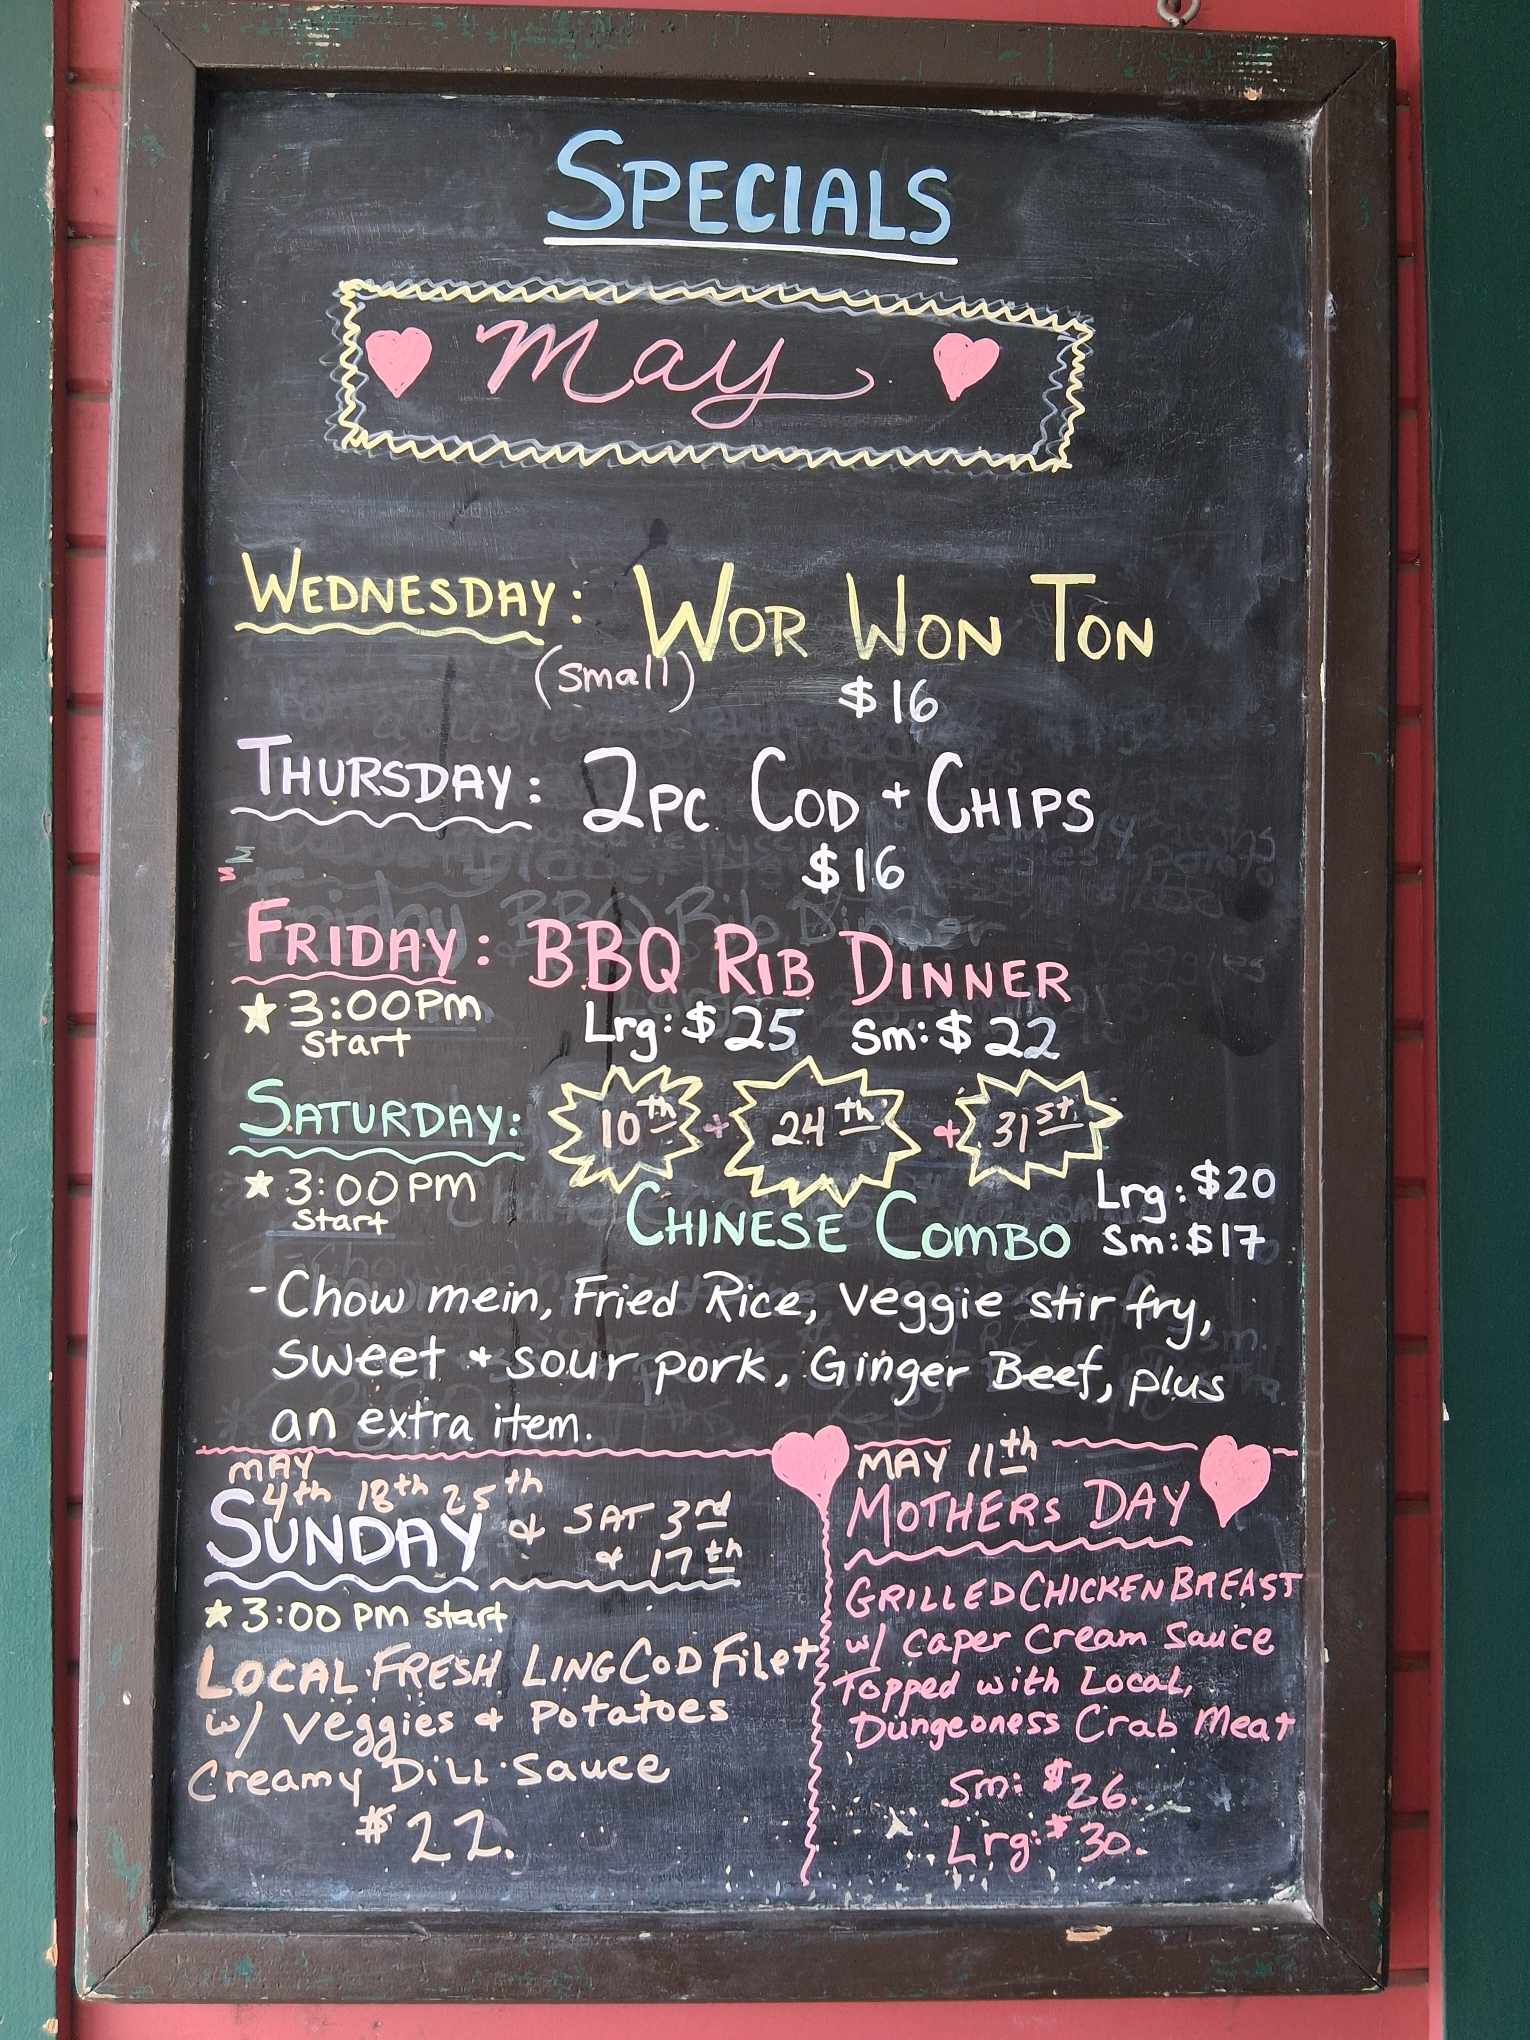 SPECIALS
May
WEDNESDAY: WOR WON TON
(small) $16
THURSDAY: 2PC COD + CHIPS
$16
FRIDAY: BBQ RIB DINNER
3:00PM Lrg: $25 Sm: $22
start
SATURDAY: 10th + 24th + 31st
3:00PM Lrg: $20
start CHINESE COMBO Sm: $17
- Chow mein, Fried Rice, Veggie stir fry,
Sweet + sour pork, Ginger Beef, plus
an extra item.
MAY
4th 18th 25th
SUNDAY & SAT 3rd
& 17th
3:00 PM start
LOCAL FRESH LING COD Filet
w/ Veggies & Potatoes
Creamy DiLL Sauce
$22.
MAY 11th
MOTHERS DAY
GRILLED CHICKEN BREAST
w/ Caper Cream Sauce
Topped with Local,
Dungeoness Crab Meat
Sm: $26.
Lrg: $30.